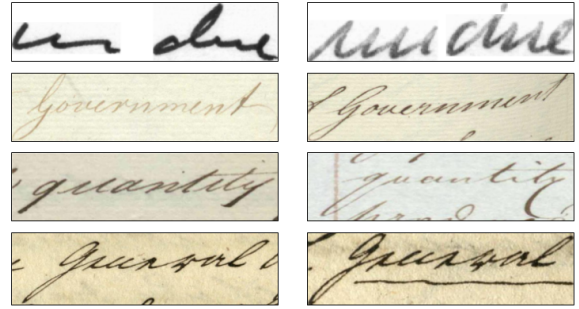 un due un due
Government Government
quantity quantity
General General